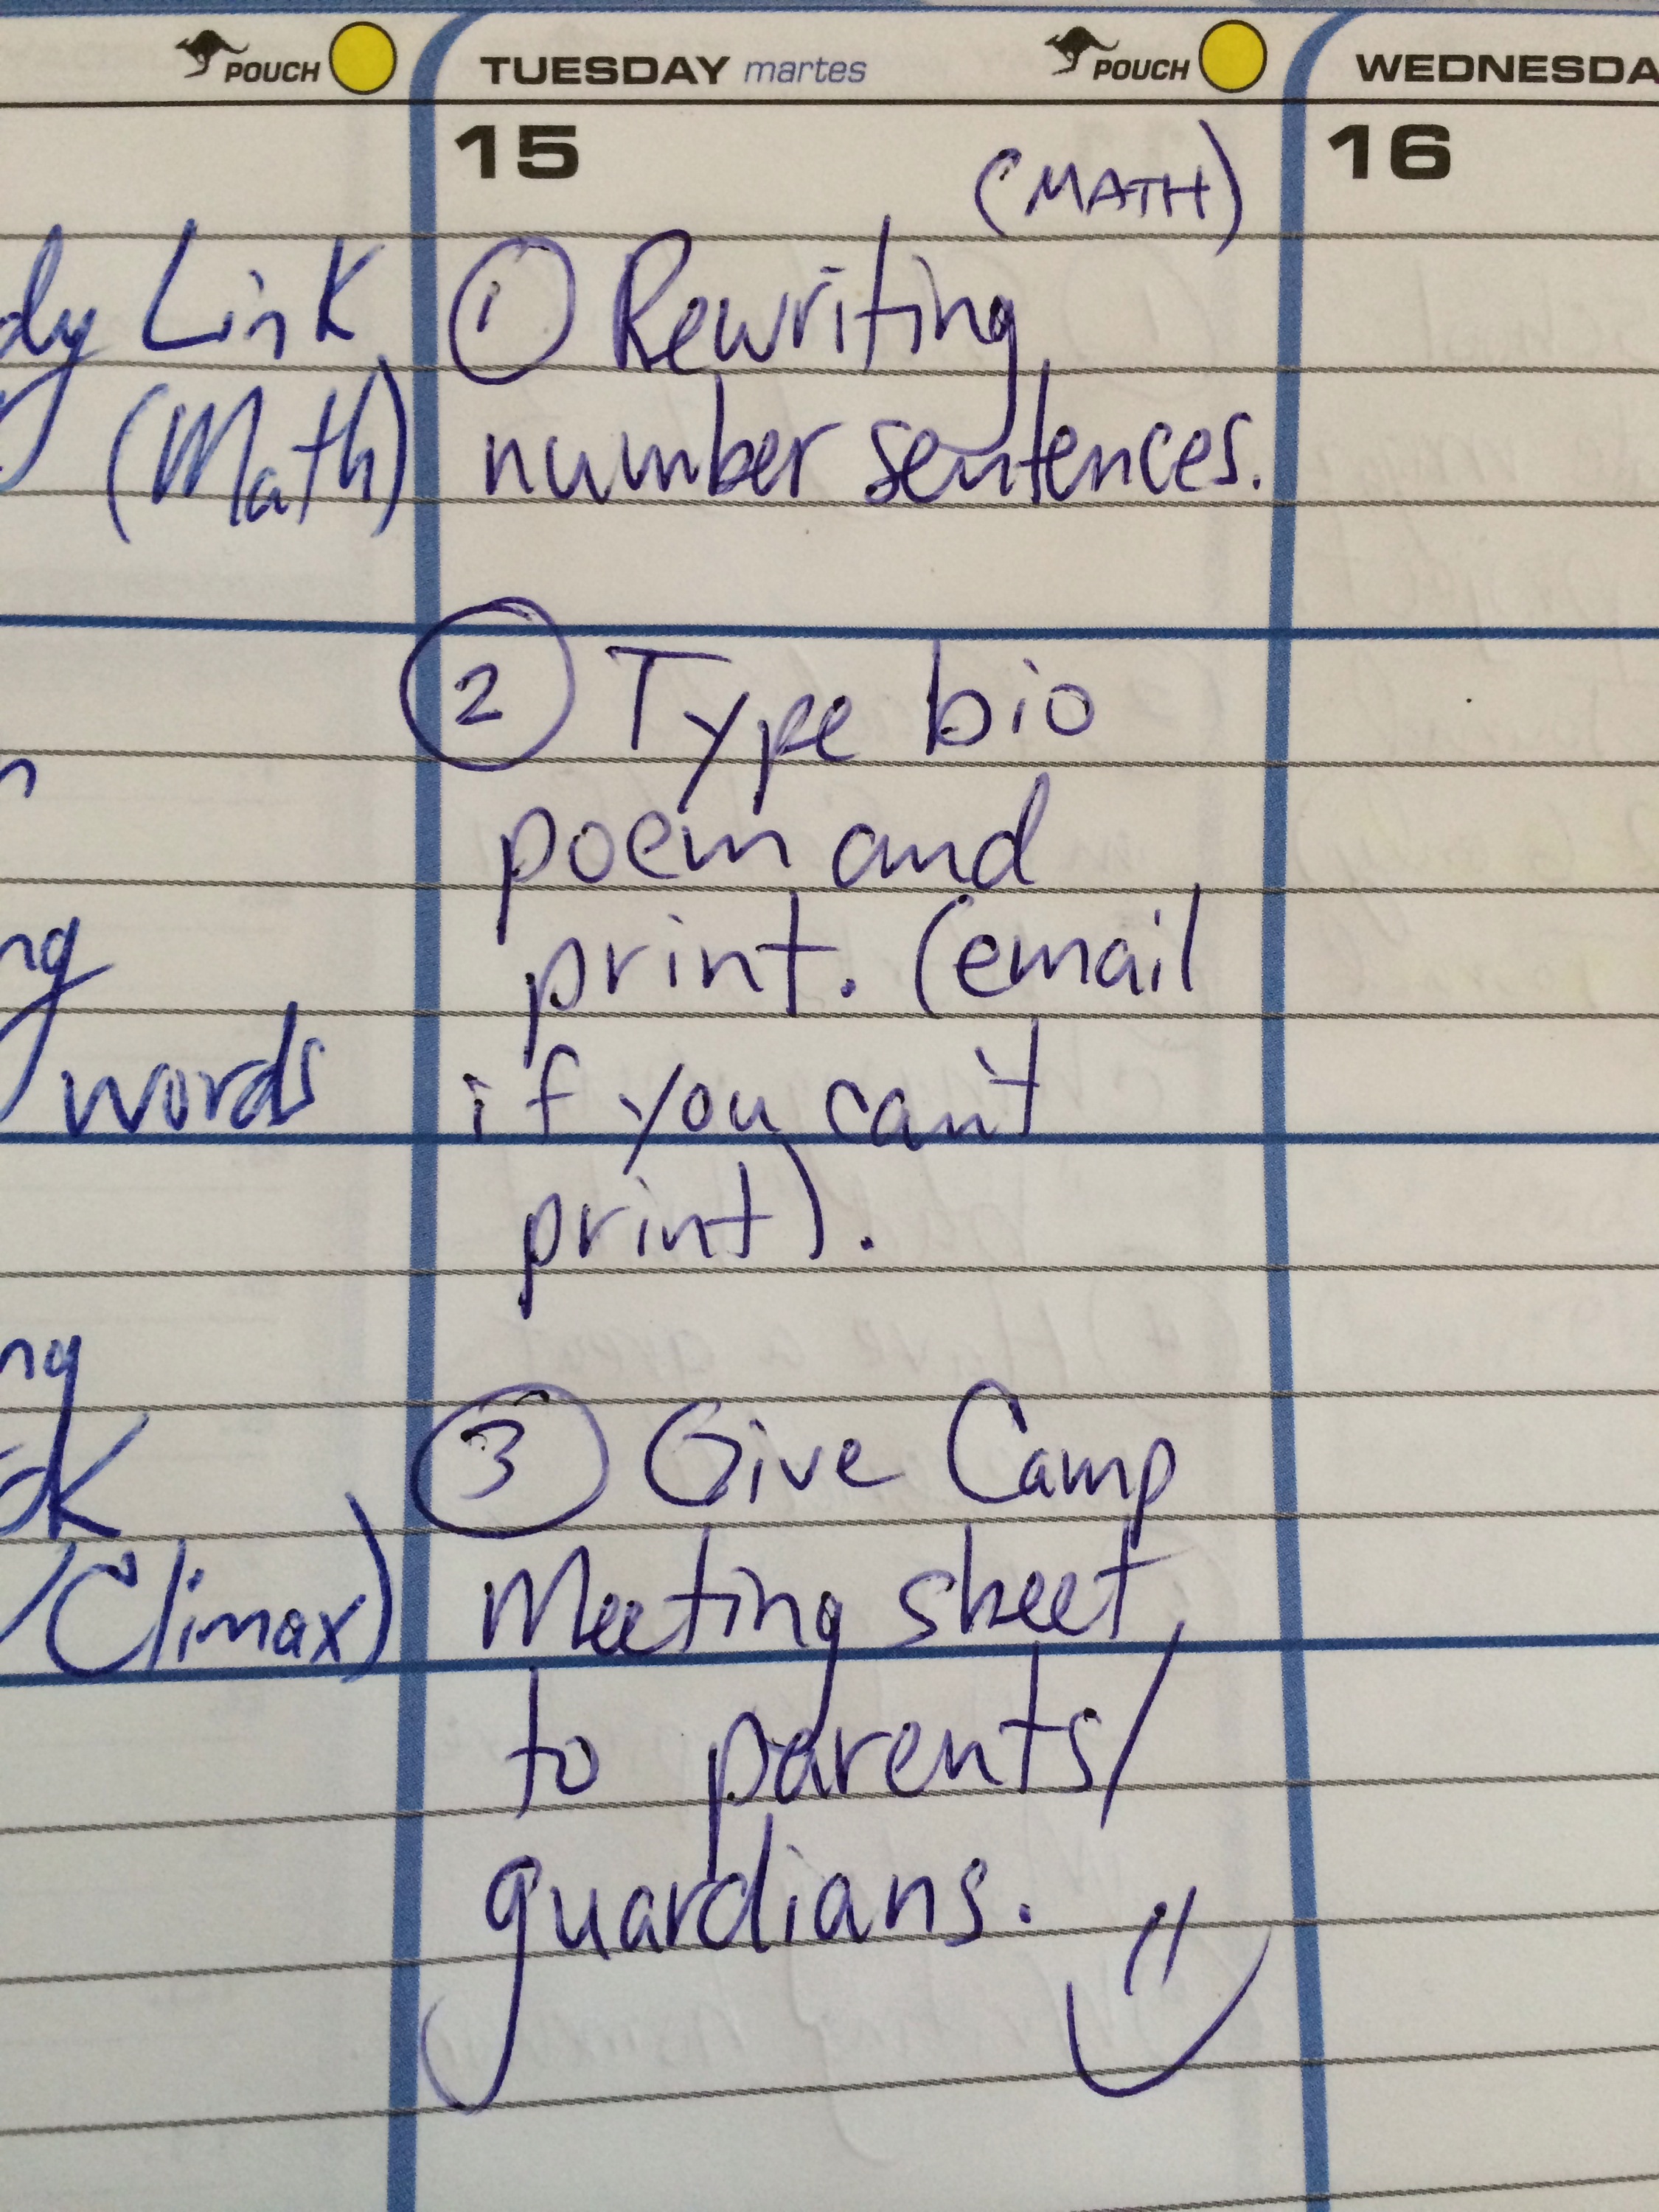 POUCH
TUESDAY martes POUCH
WEDNESDA
15
16
(MATH)
Link
(Math)
words
Climax)
① Rewriting
number sentences.
② Type bio
poem and
print. (email
if you can't
print).
③ Give Camp
Meeting sheet
to parents/
guardians.